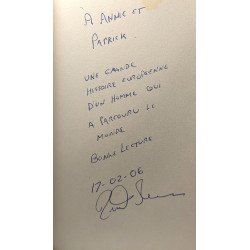 À ANNIE ET
PATRICK.
UNE GRANDE
HISTOIRE EUROPÉENNE
D'UN HOMME QUI
A PARCOURU LE
MONDE
BONNE LECTURE
17-02-06